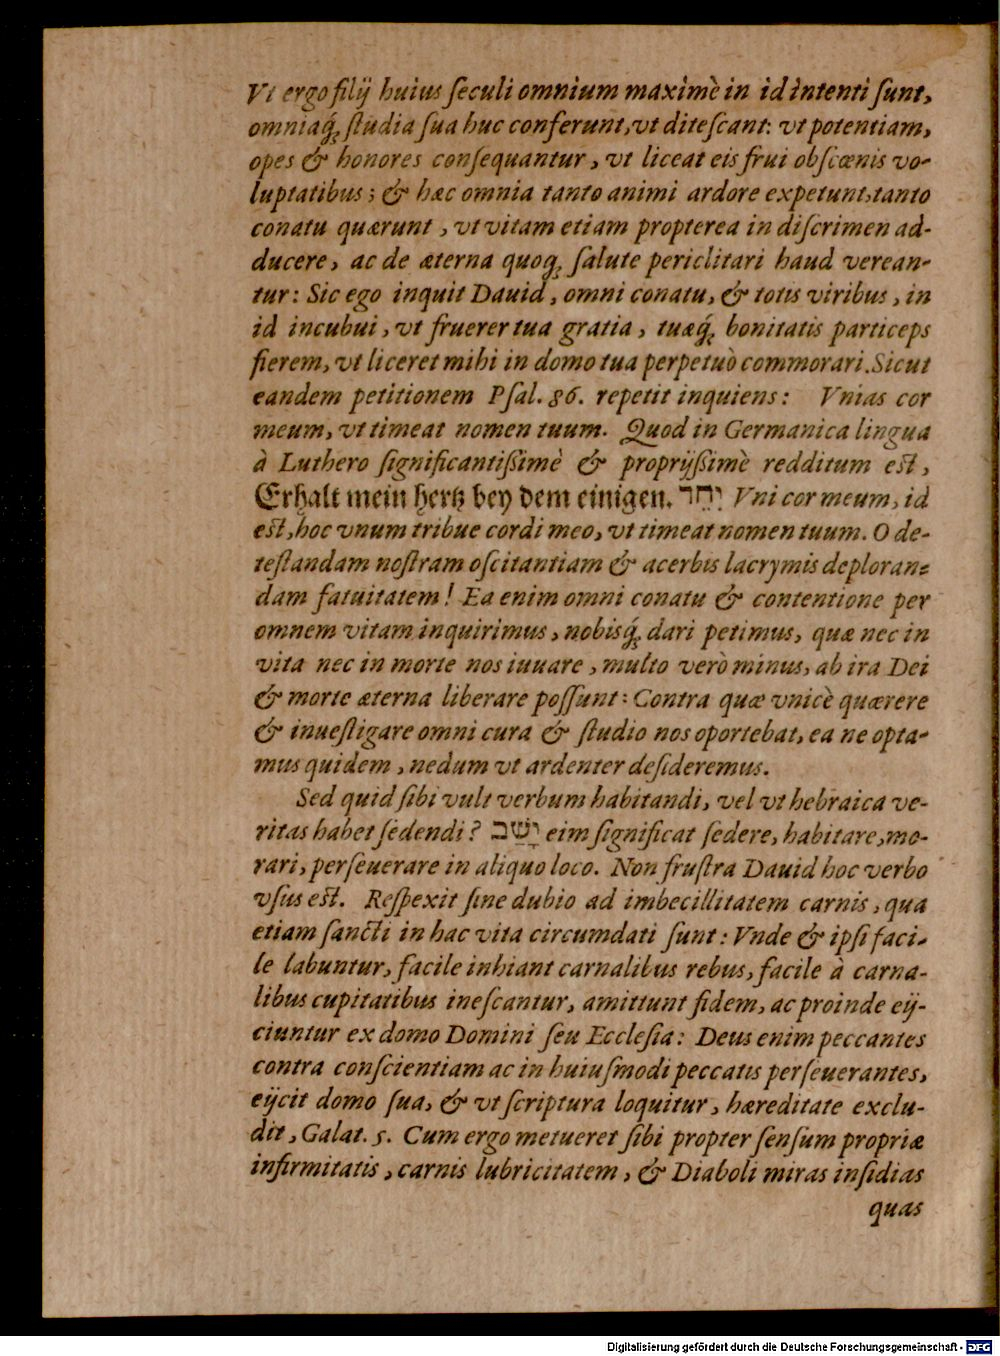 Vt ergo filij huius seculi omnium maximè in id intenti sunt,
omniaq́; studia sua huc conferunt, vt ditescant: vt potentiam,
opes & honores consequantur, vt liceat eis frui obscœnis vo-
luptatibus; & hæc omnia tanto animi ardore expetunt, tanto
conatu quærunt, vt vitam etiam propterea in discrimen ad-
ducere, ac de æterna quoq; salute periclitari haud verean-
tur: Sic ego inquit Dauid, omni conatu, & totis viribus, in
id incubui, vt fruerer tua gratia, tuæq́; bonitatis particeps
fierem, vt liceret mihi in domo tua perpetuò commorari. Sicut
eandem petitionem Psal. 86. repetit inquiens: Vnias cor
meum, vt timeat nomen tuum. Quod in Germanica lingua
à Luthero significantißimè & proprijßimè redditum est,
Erhalt mein hertz bey dem einigen. יַחֵר Vni cor meum, id
est, hoc vnum tribue cordi meo, vt timeat nomen tuum. O de-
testandam nostram oscitantiam & acerbis lacrymis deploran-
dam fatuitatem! Ea enim omni conatu & contentione per
omnem vitam inquirimus, nobisq́; dari petimus, quæ nec in
vita nec in morte nos iuuare, multo verò minus, ab ira Dei
& morte æterna liberare possunt: Contra quæ vnicè quærere
& inuestigare omni cura & studio nos oportebat, ea ne opta-
mus quidem, nedum vt ardenter desideremus.
Sed quid sibi vult verbum habitandi, vel vt hebraica ve-
ritas habet sedendi? יָשַׁב eim significat sedere, habitare, mo-
rari, perseuerare in aliquo loco. Non frustra Dauid hoc verbo
vsus est. Respexit sine dubio ad imbecillitatem carnis, qua
etiam sancti in hac vita circumdati sunt: Vnde & ipsi faci-
le labuntur, facile inhiant carnalibus rebus, facile à carna-
libus cupitatibus inescantur, amittunt fidem, ac proinde eij-
ciuntur ex domo Domini seu Ecclesia: Deus enim peccantes
contra conscientiam ac in huiusmodi peccatis perseuerantes,
eijcit domo sua, & vt scriptura loquitur, hæreditate exclu-
dit, Galat. 5. Cum ergo metueret sibi propter sensum propriæ
infirmitatis, carnis lubricitatem, & Diaboli miras insidias
quas
Digitalisierung gefördert durch die Deutsche Forschungsgemeinschaft - DFG